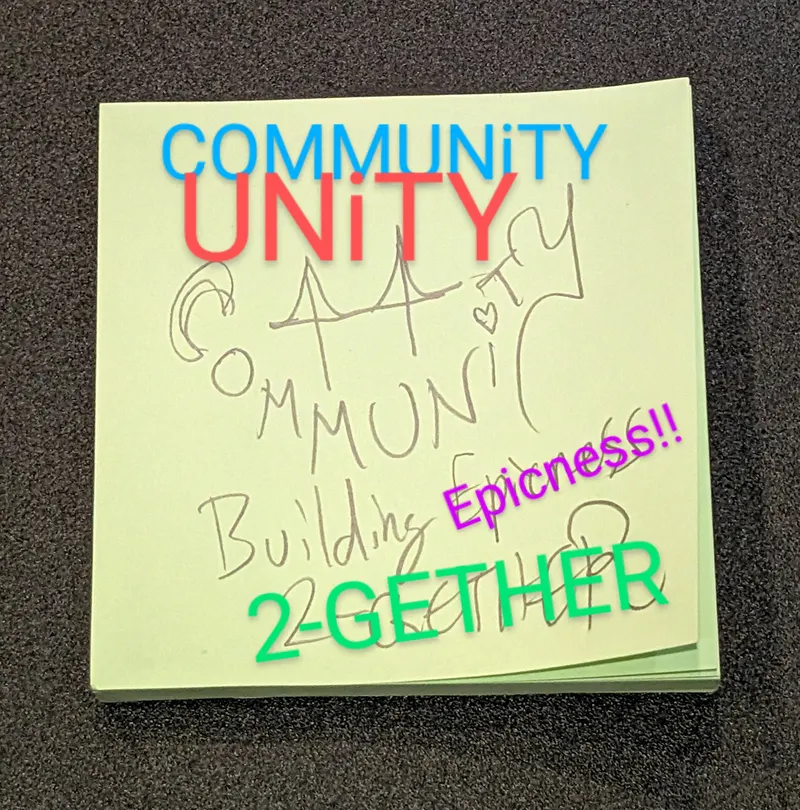 COMMUNiTY
UNiTY
COMMUNiTY
Building Epicness!!
2-GETHER